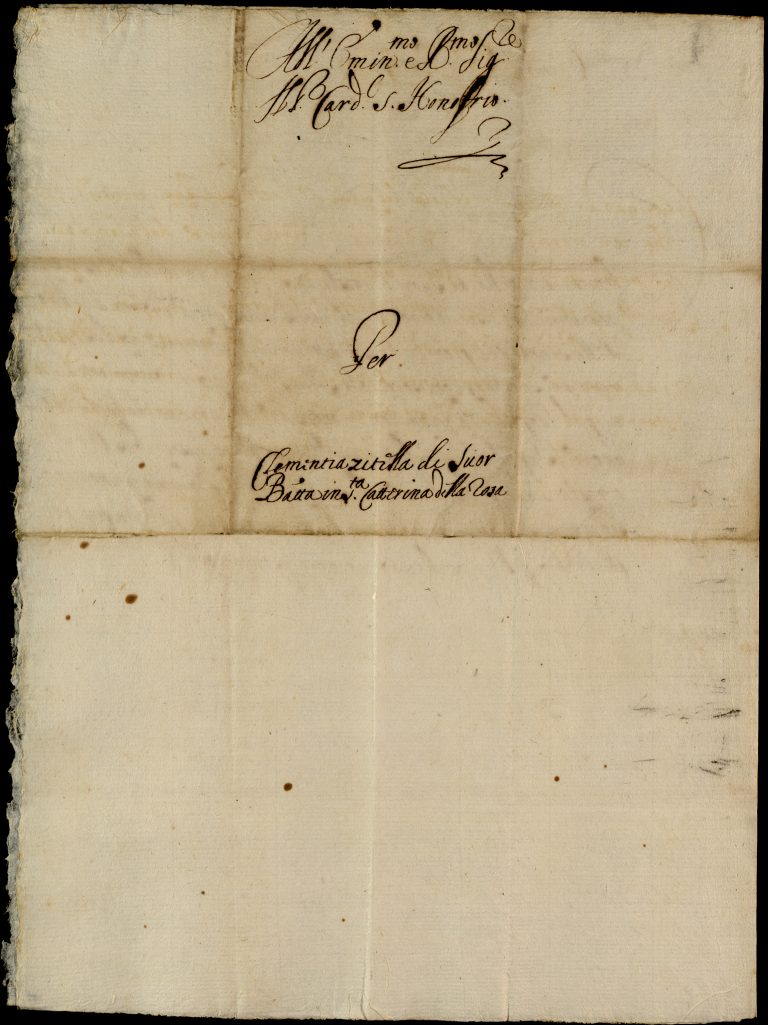 All' Emin.mo e R.mo Sig.re
Il S.r Card.l S. Honofrio.
Per
Clementia zitella di Suor
Batta in S.ta Catterina della Rosa